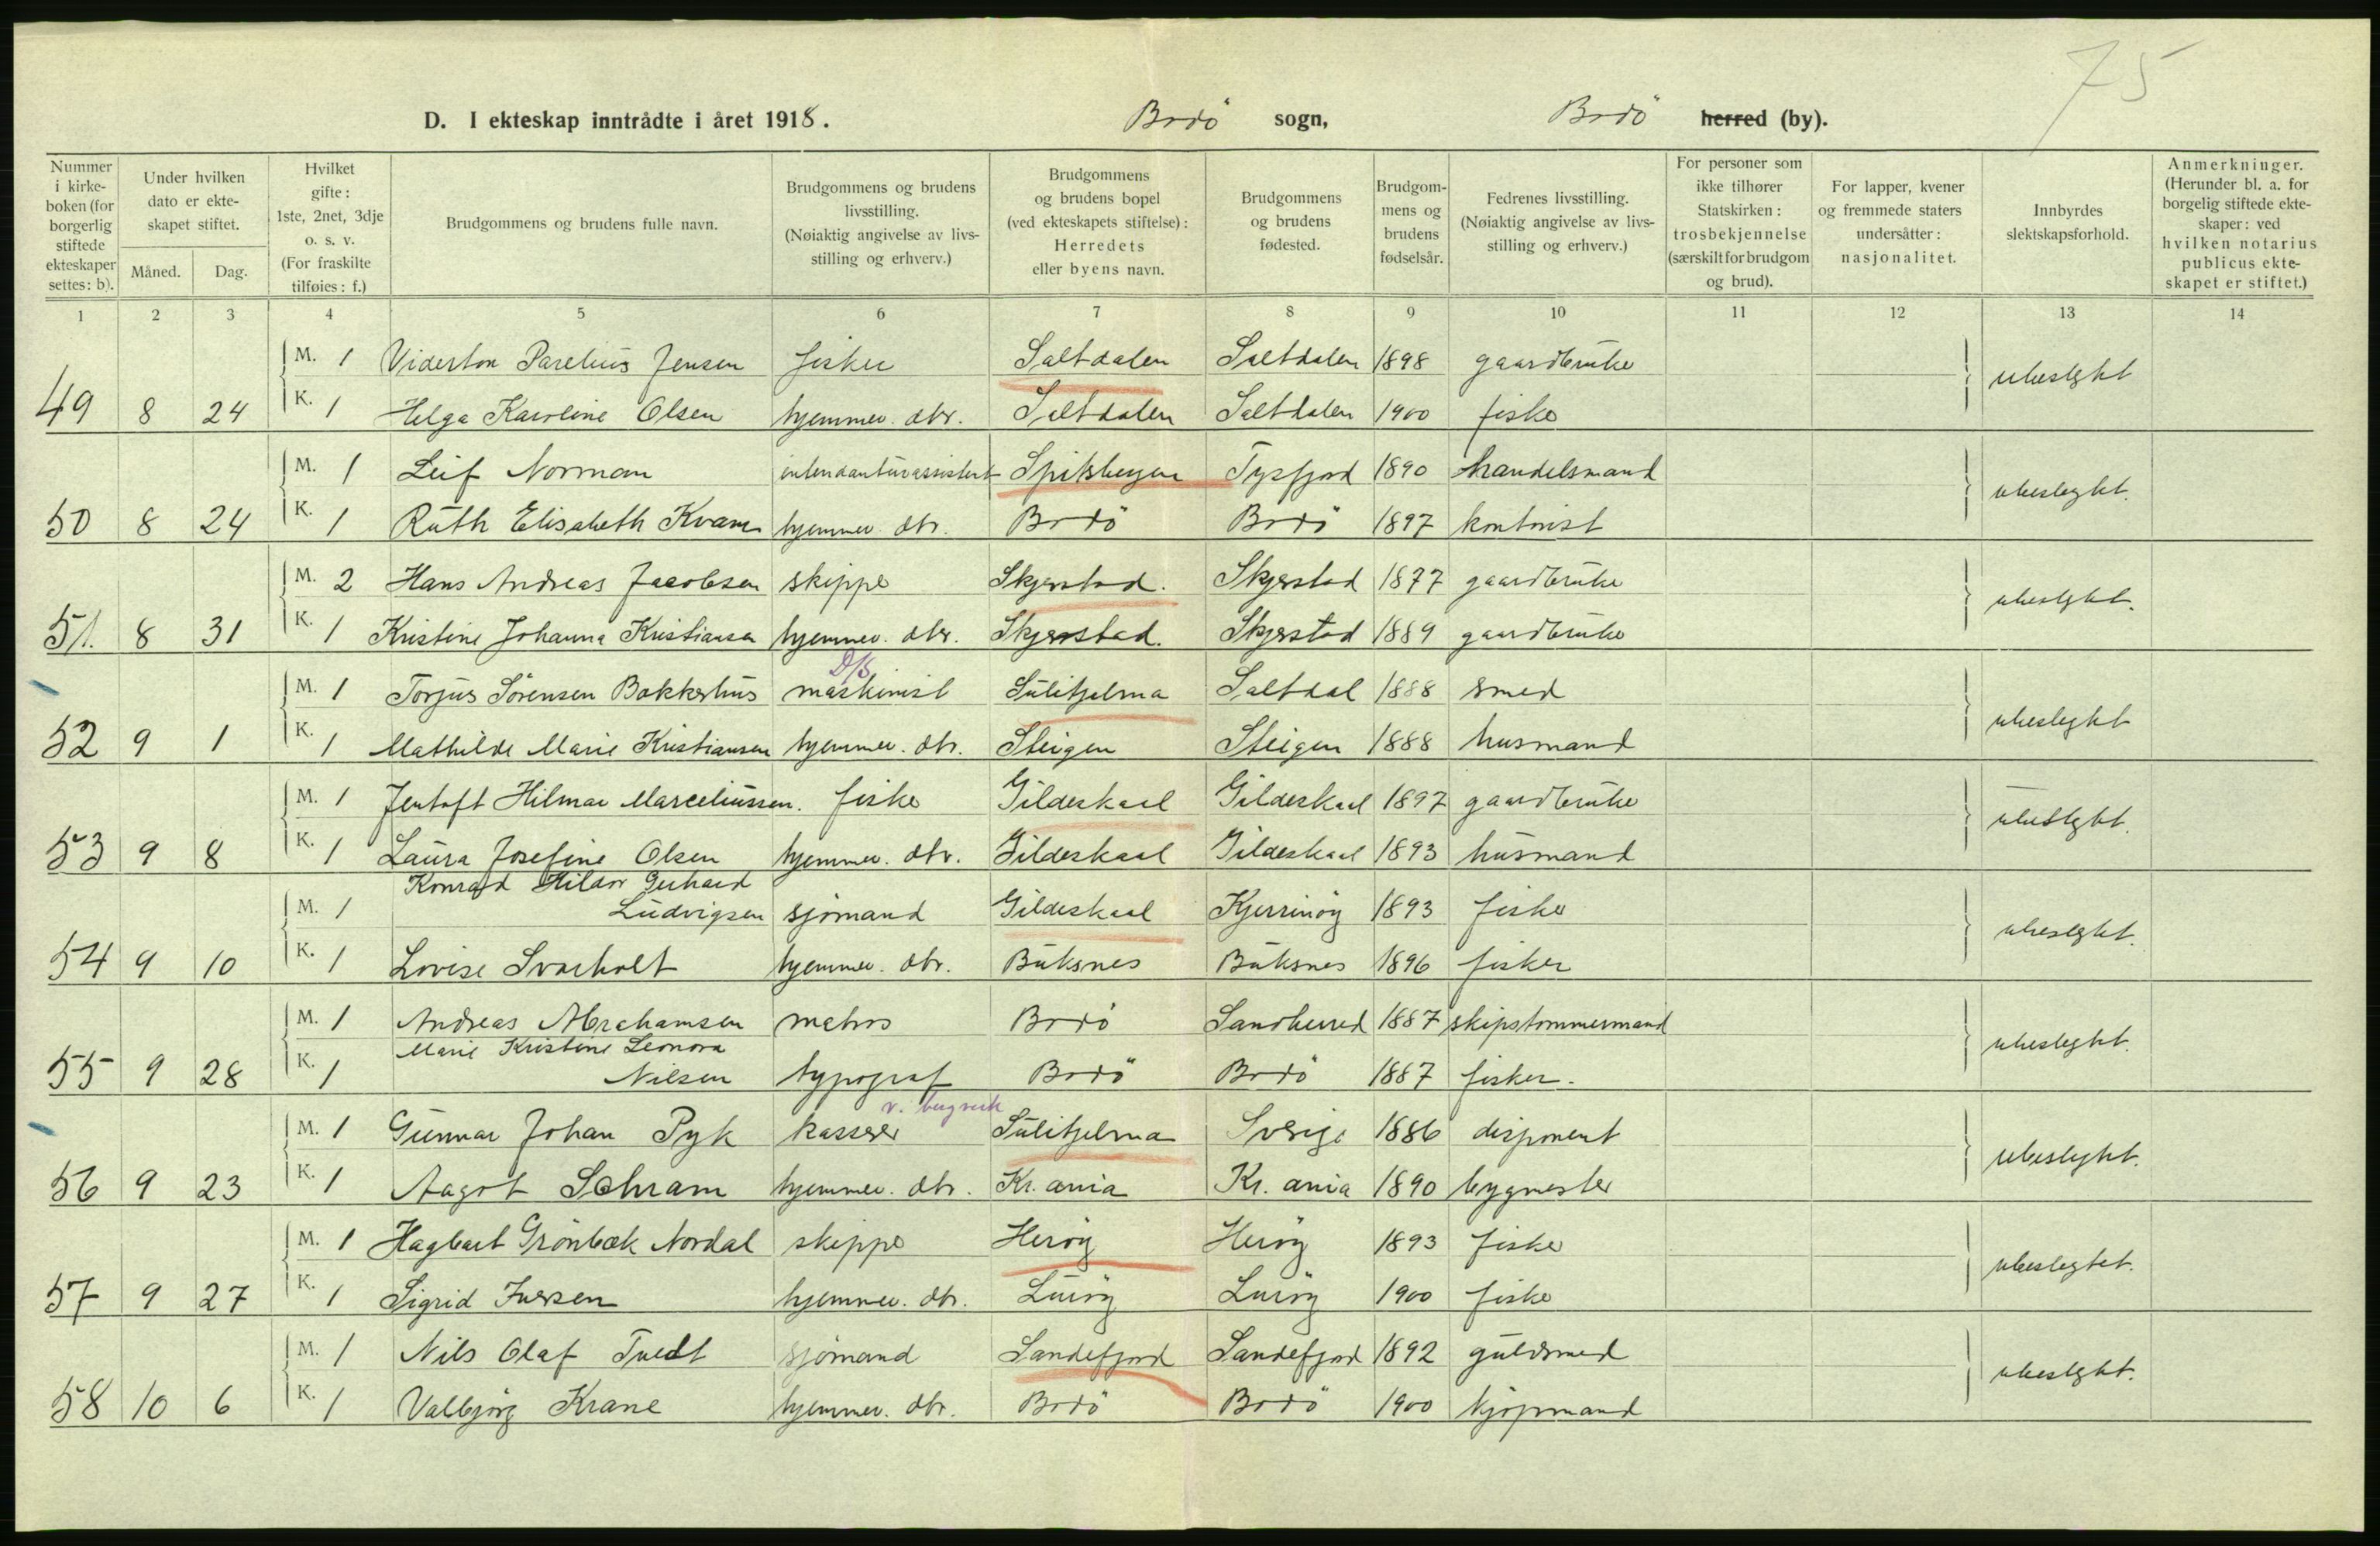 75
D. I ekteskap inntrådte i året 1918. Bodö sogn, Bodö herred (by).
Nummer i kirkeboken (for borgerlig stiftede ekteskaper settes: b). Under hvilken dato er ekteskapet stiftet. Måned. Dag. Hvilket gifte: 1ste, 2net, 3dje o. s. v. (For fraskilte tilføies: f.) Brudgommens og brudens fulle navn. Brudgommens og brudens livsstilling. (Nøiaktig angivelse av livsstilling og erhverv.) Brudgommens og brudens bopel (ved ekteskapets stiftelse): Herredets eller byens navn. Brudgommens og brudens fødested. Brudgommens og brudens fødselsår. Fedrenes livsstilling. (Nøiaktig angivelse av livsstilling og erhverv.) For personer som ikke tilhører Statskirken: trosbekjennelse (særskilt for brudgom og brud). For lapper, kvener og fremmede staters undersåtter: nasjonalitet. Innbyrdes slektskapsforhold. Anmerkninger. (Herunder bl. a. for borgelig stiftede ekteskaper: ved hvilken notarius publicus ekteskapet er stiftet.)
1 2 3 4 5 6 7 8 9 10 11 12 13 14
M. 1 Viderton Parelius Jensen fisker Saltdalen Saltdalen 1898 gaardbruke
49 8 24 K. 1 Helga Karoline Olsen hjemmev. dtr. Saltdalen Saltdalen 1900 fisker ubeslgkt
M. 1 Leif Norman intendanturassistent Spitsbergen Tysfjord 1890 handelsmand
50 8 24 K. 1 Ruth Elisabeth Kvam hjemmev. dtr. Bodö Bodö 1897 kontorist ubeslegkt.
M. 2 Hans Andreas Jacobsen skipper Skjerstad. Skjerstad 1877 gaardbruke
51. 8 31 K. 1 Kristine Johanna Kristiansen hjemmev. dtr. Skjerstad. Skjerstad 1889 gaardbruke ubeslgkt.
D/S
M. 1 Torjus Sörensen Bakkerhus maskinist Sulitjelma Saltdal 1888 smed
52 9 1 K. 1 Mathilde Marie Kristiansen hjemmev. dtr. Steigen Steigen 1888 husmand ubeslegkt
M. 1 Jentoft Hilmar Marceliussen. fisker Gildeskaal Gildeskaal 1897 gaardbruke
53 9 8 K. 1 Laura Josefine Olsen hjemmev. dtr. Gildeskaal Gildeskaal 1893 husmand ubeslgkt.
Konrad Hildor Gerhard
M. 1 Ludvigsen sjömand Gildeskaal Kjerringöy 1893 fisker
54 9 10 K. 1 Lovise Svarholt hjemmev. dtr. Buksnes Buksnes 1896 fisker ubeslgkt.
M. 1 Andreas Abrahamsen matros Bodö Sandherred 1887 skipstömmermand
Marie Kristine Leonora
55 9 28 K. 1 Nilsen typograf Bodö Bodö 1887 fisker. ubeslegkt.
v. bergverk
M. 1 Gunnar Johan Pyk kasserer Sulitjelma Sverige 1886 disponent
56 9 23 K. 1 Aagot Schram hjemmev. dtr. Kr. ania Kr. ania 1890 bygmester ubeslegkt.
M. 1 Hagbart Grönbæk Nordal skipper Heröy Heröy 1893 fisker
57 9 27 K. 1 Sigrid Iversen hjemmev. dtr. Luröy Luröy 1900 fisker ubeslegtet.
M. 1 Nils Olaf Tvedt sjömand Sandefjord Sandefjord 1892 guldsmed
58 10 6 K. 1 Valbjörg Krane hjemmev. dtr. Bodö Bodö 1900 kjöpmand ubeslgkt.